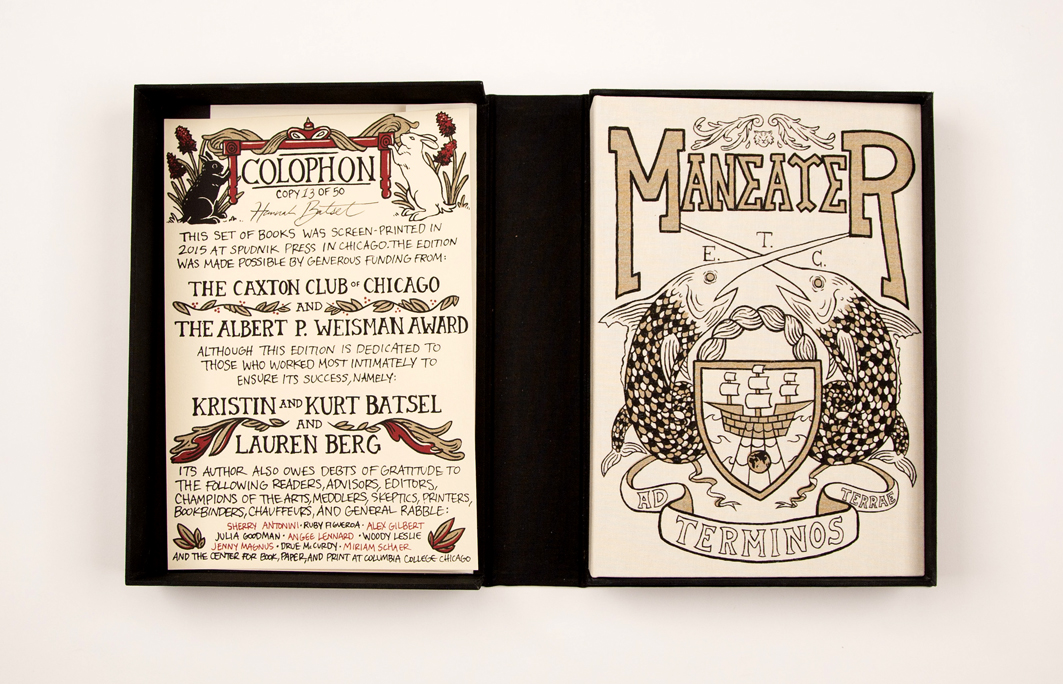 COLOPHON
COPY 13 OF 50
Hannah Batsel
THIS SET OF BOOKS WAS SCREEN-PRINTED IN
2015 AT SPUDNIK PRESS IN CHICAGO. THE EDITION
WAS MADE POSSIBLE BY GENEROUS FUNDING FROM:
THE CAXTON CLUB OF CHICAGO
AND
THE ALBERT P. WEISMAN AWARD
ALTHOUGH THIS EDITION IS DEDICATED TO
THOSE WHO WORKED MOST INTIMATELY TO
ENSURE ITS SUCCESS, NAMELY:
KRISTIN AND KURT BATSEL
AND
LAUREN BERG
ITS AUTHOR ALSO OWES DEBTS OF GRATITUDE TO
THE FOLLOWING READERS, ADVISORS, EDITORS,
CHAMPIONS OF THE ARTS, MEDDLERS, SKEPTICS, PRINTERS,
BOOKBINDERS, CHAUFFEURS, AND GENERAL RABBLE:
SHERRY ANTONINI · RUBY FIGUEROA · ALEX GILBERT
JULIA GOODMAN · ANGEE LENNARD · WOODY LESLIE
JENNY MAGNUS · DRUE MCCURDY · MIRIAM SCHAER
AND THE CENTER FOR BOOK, PAPER, AND PRINT AT COLUMBIA COLLEGE CHICAGO
MANEATER
E. T. C.
AD TERMINOS TERRAE